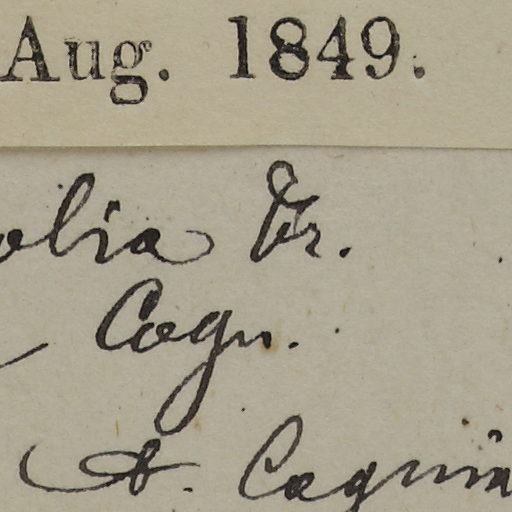 Aug. 1849.
olia Tr.
Cogn.
A. Cogniau